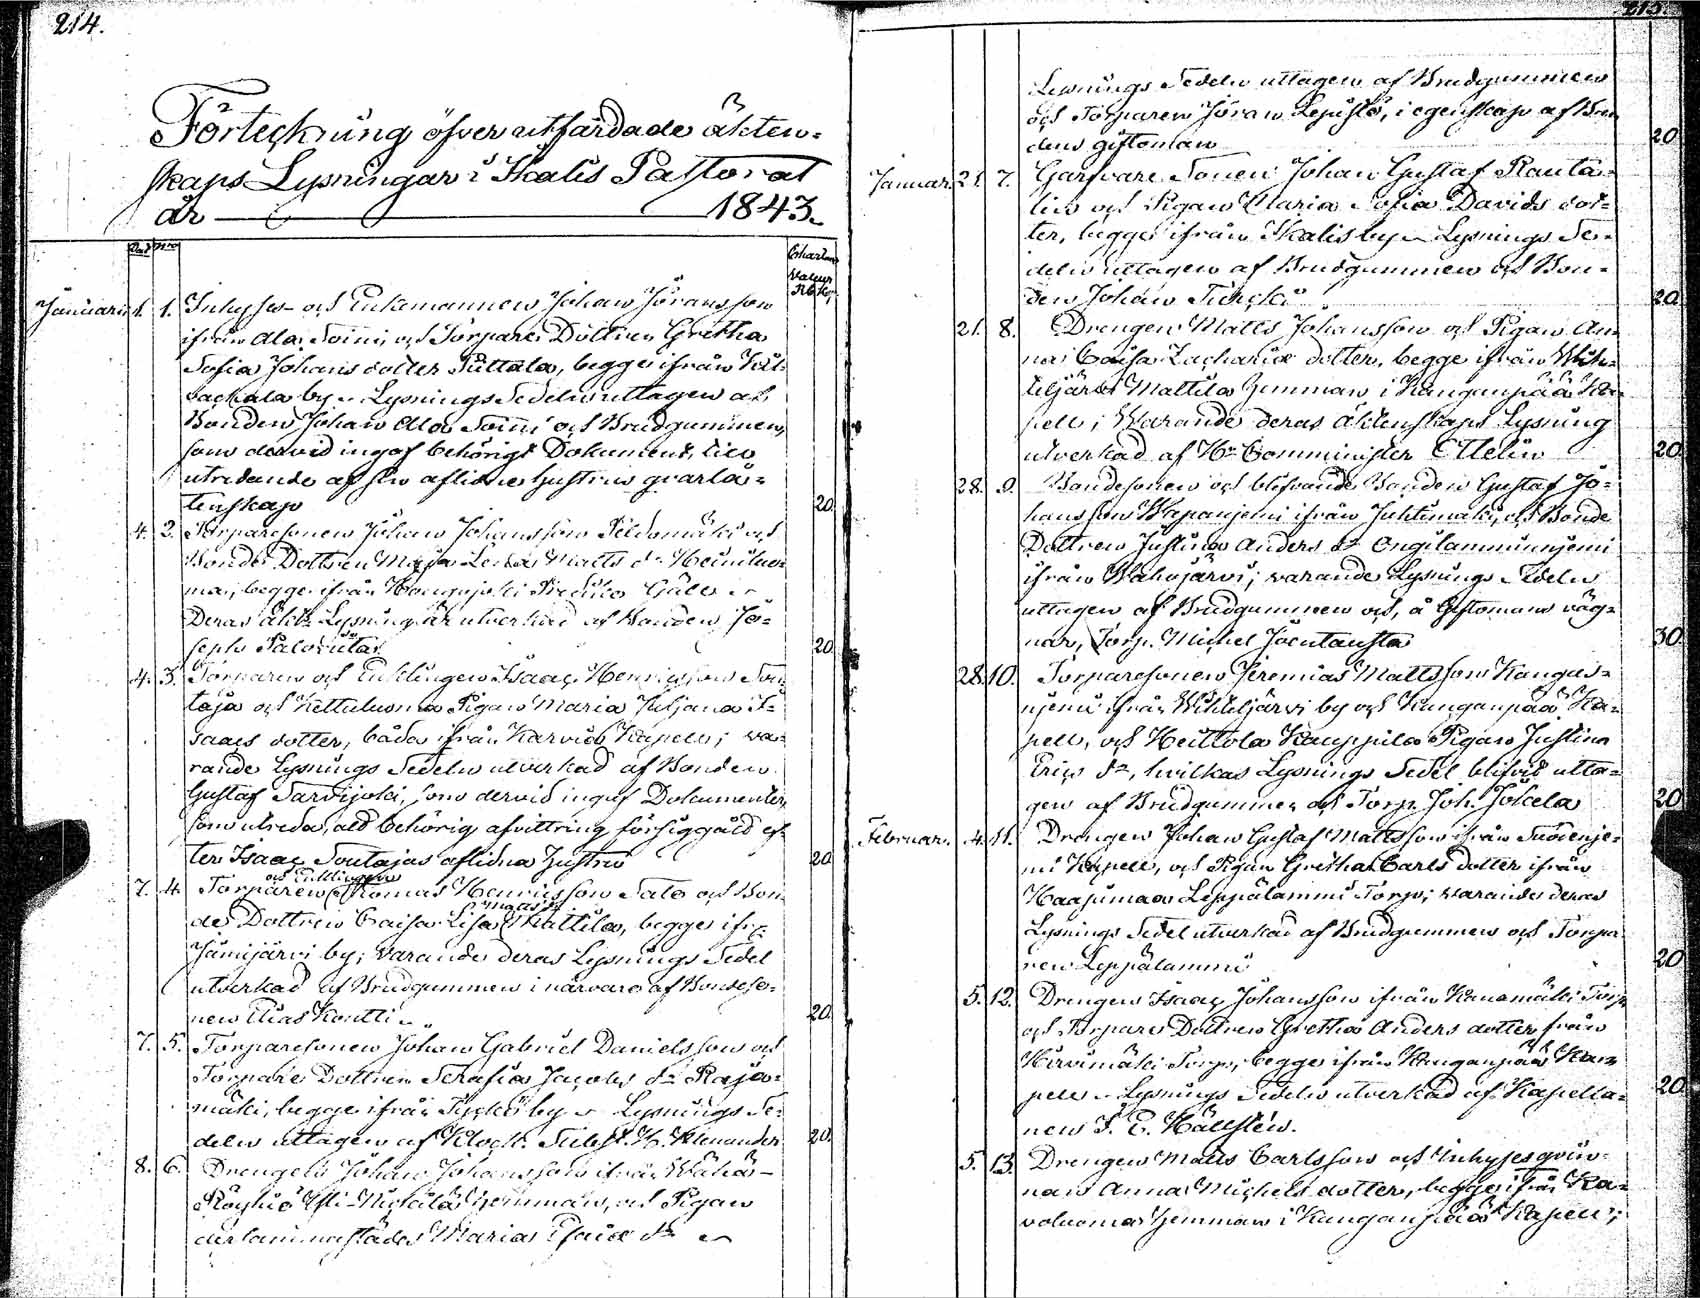 214.
Förteckning öfver utfärdade äkten-
skaps Lysningar i Ikalis Pastorat
år 1843.
Dat. Nro Charta Valeur Rb. Kop.
Januarii 1. 1. Inhyses- och Enkemannen Johan Jöransson
ifrån Ala Soini och Torpare Dottren Gretha
Sofia Johans dotter Puttala, begge ifrån
by - Lysnings Sedeln uttagen af
Bonden Johan Ala Soini och Brudgummen,
som dervid ingaf behörigt Dokument, till
utredande af sin aflidne hustrus qvarlå-
tenskap 20.
4. 2. Torparesonen Johan Johansson och
Bonde Dottren Maja Lena Matts dr
begge ifrån
Deras äkt. Lysning är utverkad af Bonden Jo-
seph 20.
4. 3. Torparen och Enklingen Isaac Henricsson Sou-
taja och Kettuluoma Pigan Maria Juljana I-
saacs dotter, båda ifrån Karvia Kapell; va-
rande Lysnings Sedeln utverkad af Bonden
Gustaf Sarvijoki, som dervid ingaf Dokumenter,
som utreda, att behörig afvittring försiggått ef-
ter Isaac Soutajas aflidna Hustru 20.
7. 4. Torparen och Enklingen Thomas Henricsson Salo och Bon-
de Dottren Caisa Lisa Matts dr Mattila, begge ifrån
Jämijärvi by; varande deras Lysnings Sedel
utverkad af Brudgummen i närvaro af Bondeso-
nen Elias Kontti - 20.
7. 5. Torparesonen Johan Gabriel Danielsson och
Torpare Dottren Serafia Jacobs dr Raja-
mäki, begge ifrån by - Lysnings Se-
deln uttagen af Klock. Subst. K. Alexander 20.
8. 6. Drengen Johan Johansson ifrån Wähä-
Röyhiö Yli- Hemman, och Pigan
derlammastädes Maria Esaiæ dr -
215.
Lysnings Sedeln uttagen af Brudgummen
och Torparen Jöran i egenskap af Bru-
dens giftoman 20
Januar. 21. 7. Garfvare Sonen Johan Gustaf Ranta-
lin och Pigan Maria Sofia Davids dot-
ter, begge ifrån Ikalis by - Lysnings Se-
deln uttagen af Brudgummen och Bon-
den Johan Turcki 20.
21. 8. Drengen Matts Johansson och Pigan An-
na Caisa Zachariæ dotter, begge ifrån Wih-
teljärvi Mattila Hemman i Kanganpää Ka-
pell; Warande deras äktenskaps Lysning
utverkad af Hr Comminister Ettelin 20.
28. 9. Bondesonen och blifvande Bonden Gustaf Jo-
hansson Wapaniemi ifrån Juhtimäki, och Bonde
Dottren Justina Anders dr
ifrån Wahojärvi; varande Lysnings Sedeln
uttagen af Brudgummen och, å Giftomans väg-
nar, Torp. Michel 30.
28. 10. Torparesonen Jeremias Mattsson Kangas-
niemi ifrån Wihteljärvi by och Kanganpää Ka-
pell, och Heittola Kauppila Pigan Justina
Erics dr, hvilkas Lysnings Sedel blifvit utta-
gen af Brudgummen och Torp. Joh. Jokela 20
Februar. 4. 11. Drengen Johan Gustaf Mattsson ifrån Suodenje-
mi Kapell, och Pigan Gretha Carls dotter ifrån
Haapimaa Leppälammi Torp; varande deras
Lysnings Sedel utverkad af Brudgummen och Torpa-
ren Leppälammi 20
5. 12. Drengen Isaac Johansson ifrån Kanamäki Torp
och Torpare Dottren Gretha Anders dotter från
Hirvimäki Torp, begge ifrån Kanganpää Ka-
pell - Lysnings Sedeln utverkad af Kapella- 20.
nen F. E. Hällsten.
5. 13. Drengen Matts Carlsson och Inhysesqvin-
nan Anna Michels dotter, begge ifrån Ka-
valuoma Hemman i Kanganpää Kapell;